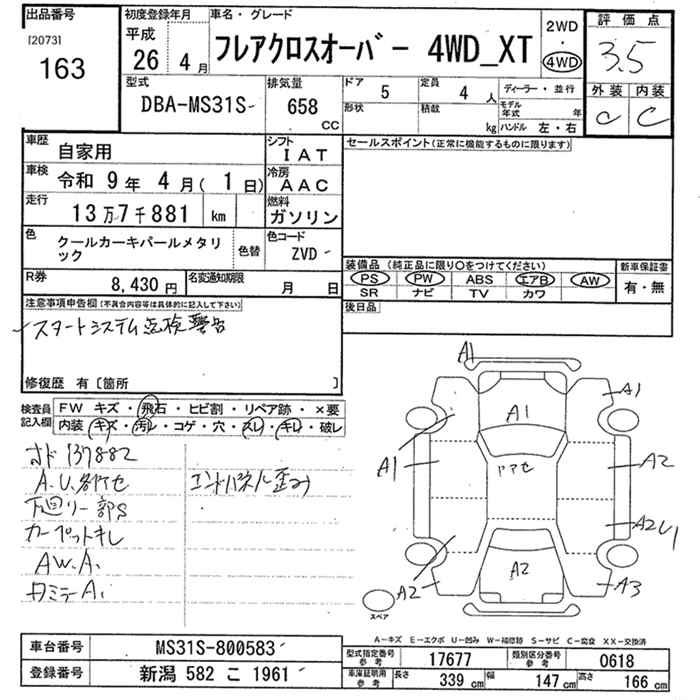 出品番号
[2073]
163
初度登録年月
平成
26 4月
車名・グレード
フレアクロスオーバー 4WD_XT
2WD
・
4WD
評価点
3.5
外装 内装
C C
型式
DBA-MS31S
排気量
658
CC
ドア
5
形状
定員
4 人
積載
kg
ディーラー・並行
モデル年式 年
ハンドル 左・右
車歴
自家用
シフト
IAT
セールスポイント(正常に機能するものに限ります)
車検
令和 9年 4月( 1日)
冷房
AAC
走行
13万7千881 km
燃料
ガソリン
色
クールカーキパールメタリ
ック
色替
色コード
ZVD
R券
8,430円
名変通知期限
月 日
装備品(純正品に限り○をつけてください)
PS PW ABS エアB AW
SR ナビ TV カワ
新車保証書
有・無
後日品
注意事項申告欄(不具合内容等は具体的に記入して下さい)
スタートシステム点検警告
修復歴 有 [箇所 ]
検査員
記入欄
FW キズ・飛石・ヒビ割・リペア跡・×要
内装 キズ・汚レ・コゲ・穴・スレ・キレ・破レ
137882
A.U.
下回リ一部S
カーペットキレ
AW.A.
エンドパネル歪み
A1
A1
A1
A1
A2
A2
A2
A3
スペア
A-キズ E-エクボ U-凹み W-補修跡 S-サビ C-腐食 XX-交換済
車台番号
MS31S-800583
登録番号
新潟 582 こ 1961
型式指定番号
参考
17677
類別区分番号
参考
0618
車庫証明用
参考
長さ
339 cm
幅
147 cm
高さ
166 cm